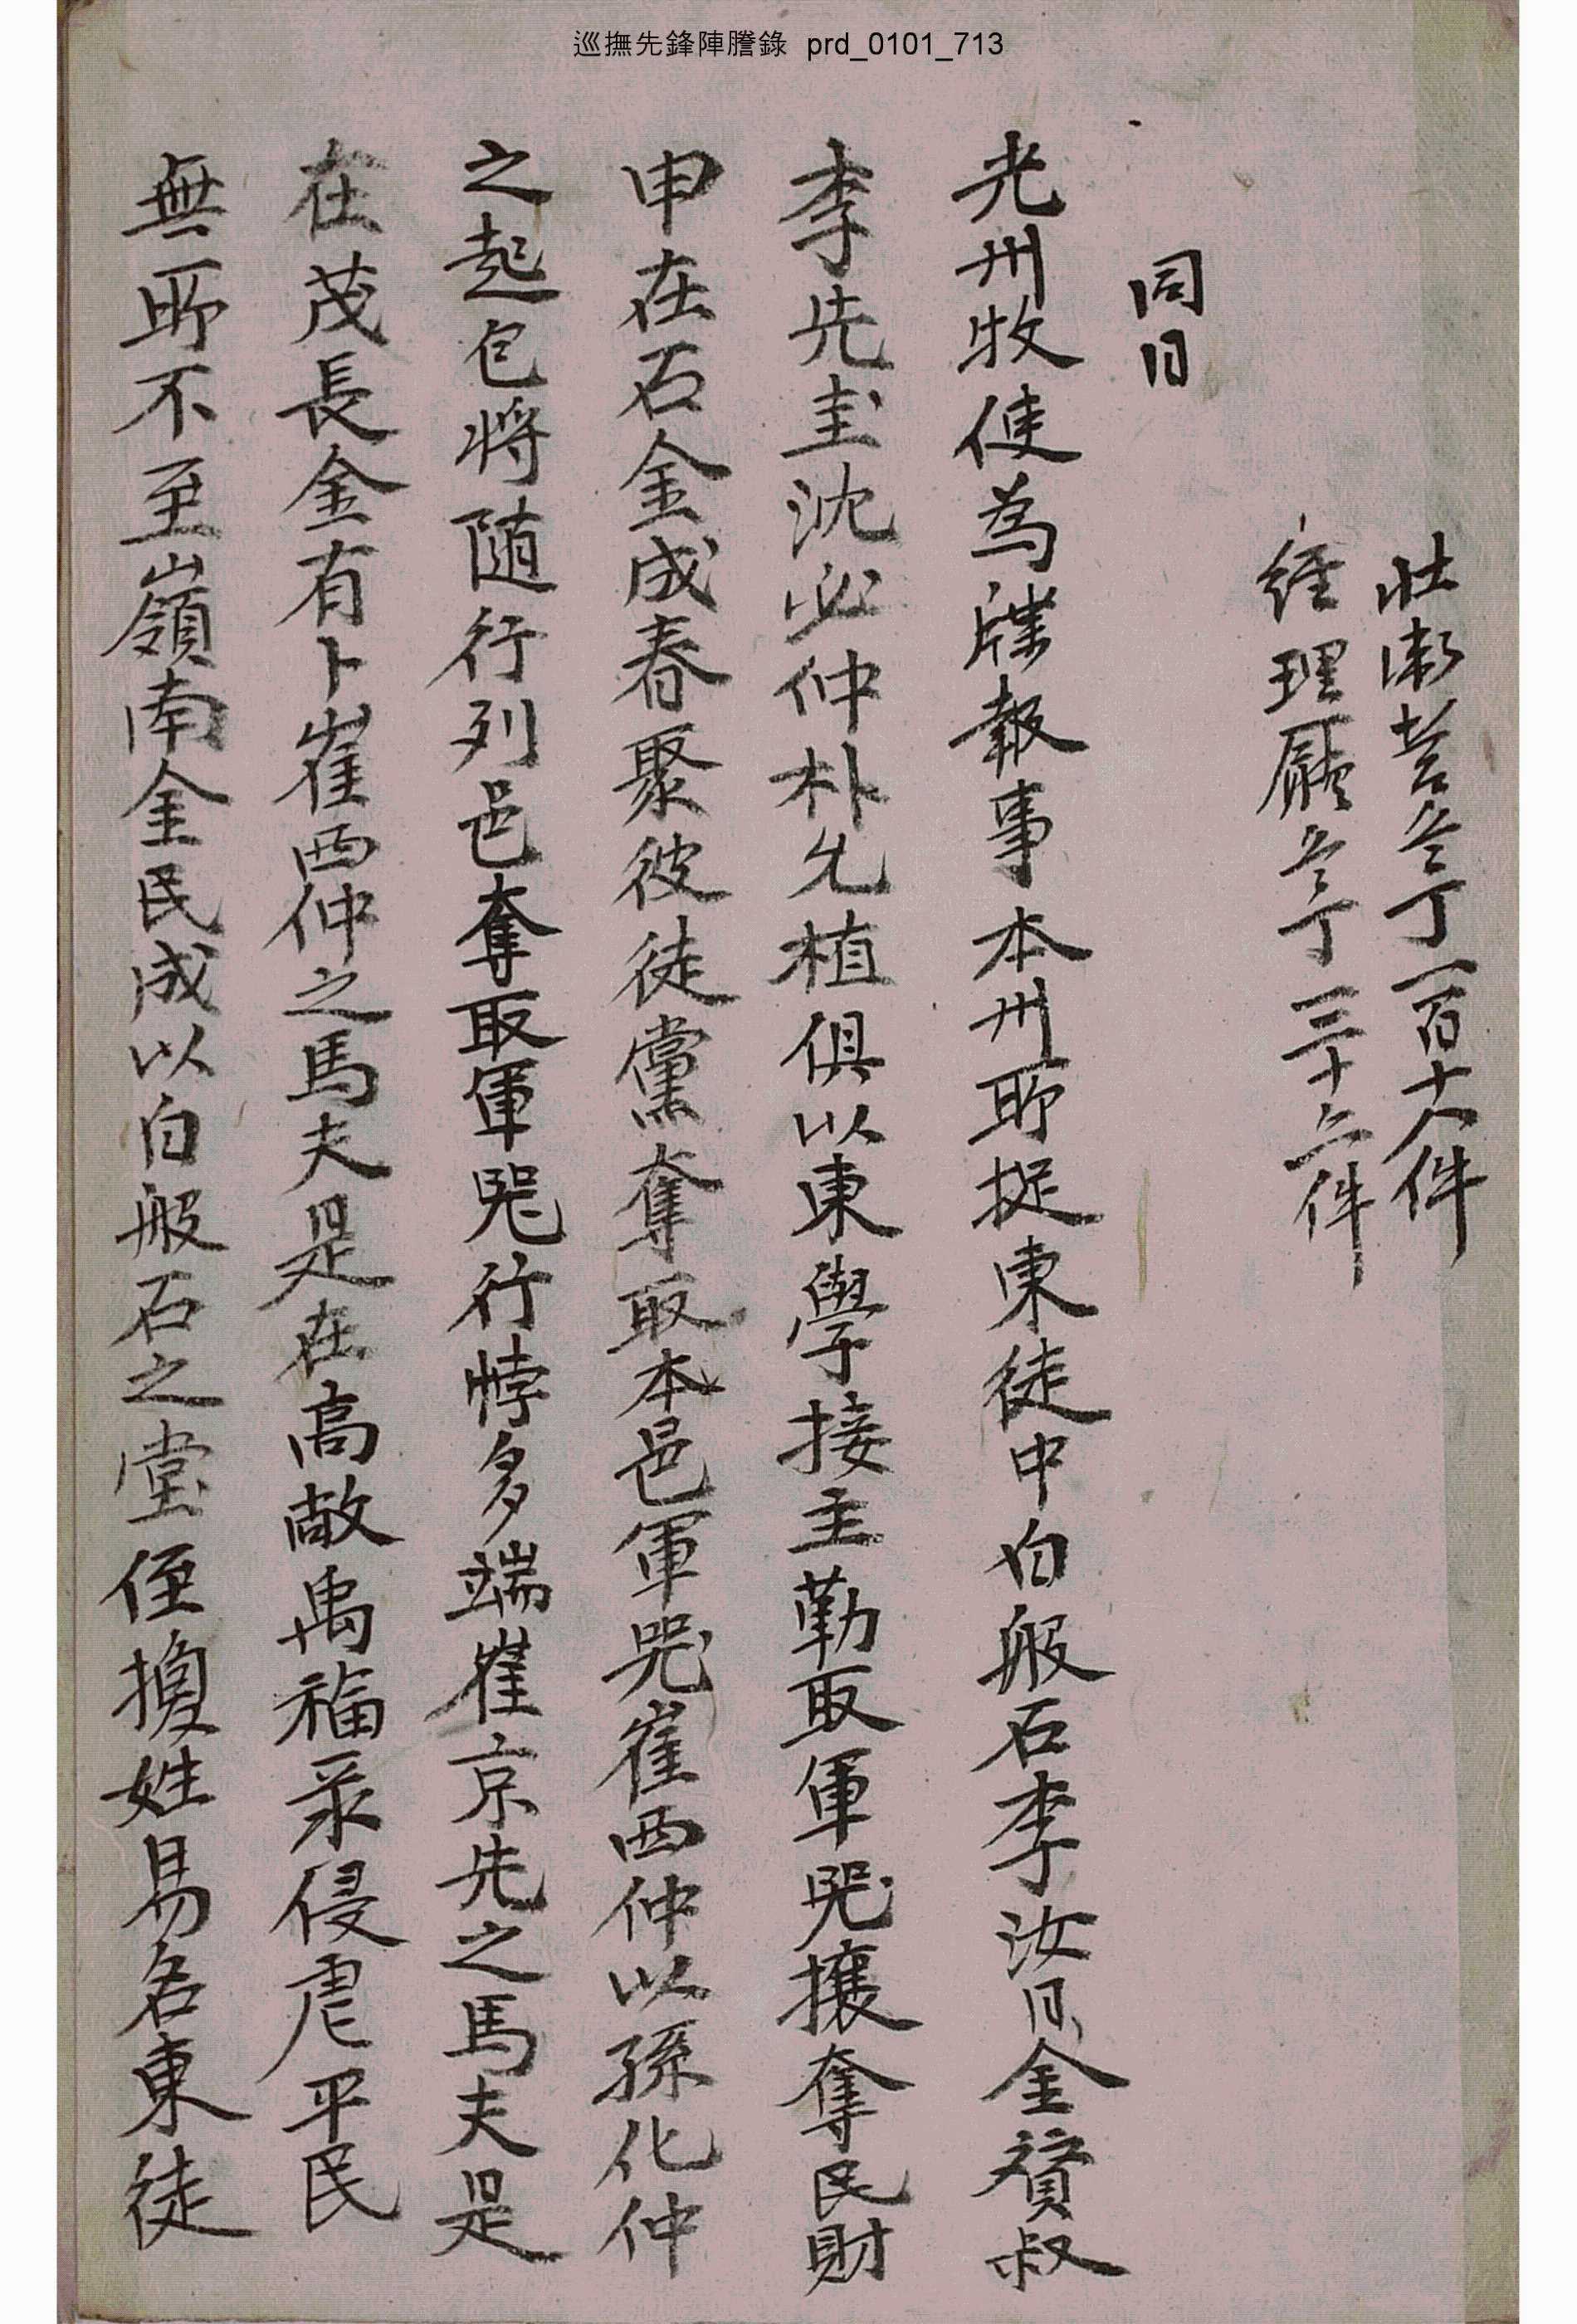 巡撫先鋒陣謄錄 prd_0101_713
壯衛營各丁一百十八件
經理廳各丁三十六件
同日
光州牧使爲牒報事本州所捉東徒中白般石李汝日金贊叔
李先圭沈必仲朴允植俱以東學接主勒取軍器攘奪民財
申在石金成春聚彼徒黨奪取本邑軍器崔西仲以孫化仲
之起包將随行列邑奪取軍器行悖多端崔京先之馬夫是
在茂長金有卜崔西仲之馬夫是在高敞禹福彔侵虐平民
無所不至嶺南金民成以白般石之堂侄換姓易名東徒